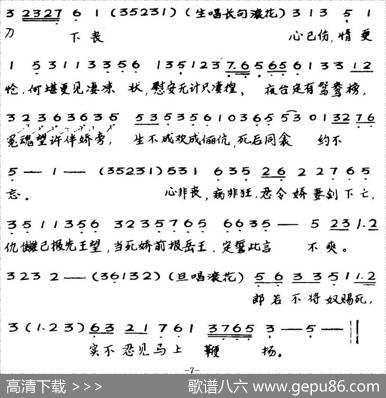 3 2327 6 1 (35231) (生唱长句滚花) 3 1 3 5 1
刀 下丧 心已伤,情更
1 5 3 1 1 3 3 5 6 1 3 5 1 2 3 7.6 5 6 5 6 1 3 3 1 2
怆,何堪更见凄凉状,慰安无计只凄惶,夜台定有鸳鸯榜,
3 2 3 6 3 6 3 5 5 3 5 3 5 6 1 0 3 6 5 5 3 0 1 3 2 7 6
冤魂望许伴娇旁,生不成欢成俪伉,死后同衾约不
5 — 1 — (35231) 5 3 1 6 3 5 2 6 2 2 7 6 5
忘。 心非丧,病非狂,君令娇妻剑下亡,
3 5 1 1 3 5 6 3 2 3 5 7 6 5 6 6 3 5 — 5 2 3 1.2
仇雠已报先王望,当死娇前报岳王,定誓此言不爽。
3 2 3 2 — (36132) (旦唱滚花) 5 6 3 3 5 1 1.2
郎若不将奴赐死,
3 (1.2 3) 6 3 2 1 7 6 1 3 7 6 5 3 — 5 — ||
实不忍见马上鞭扬。
-7-
高清下载 >>> 歌谱八六 www.gepu86.com